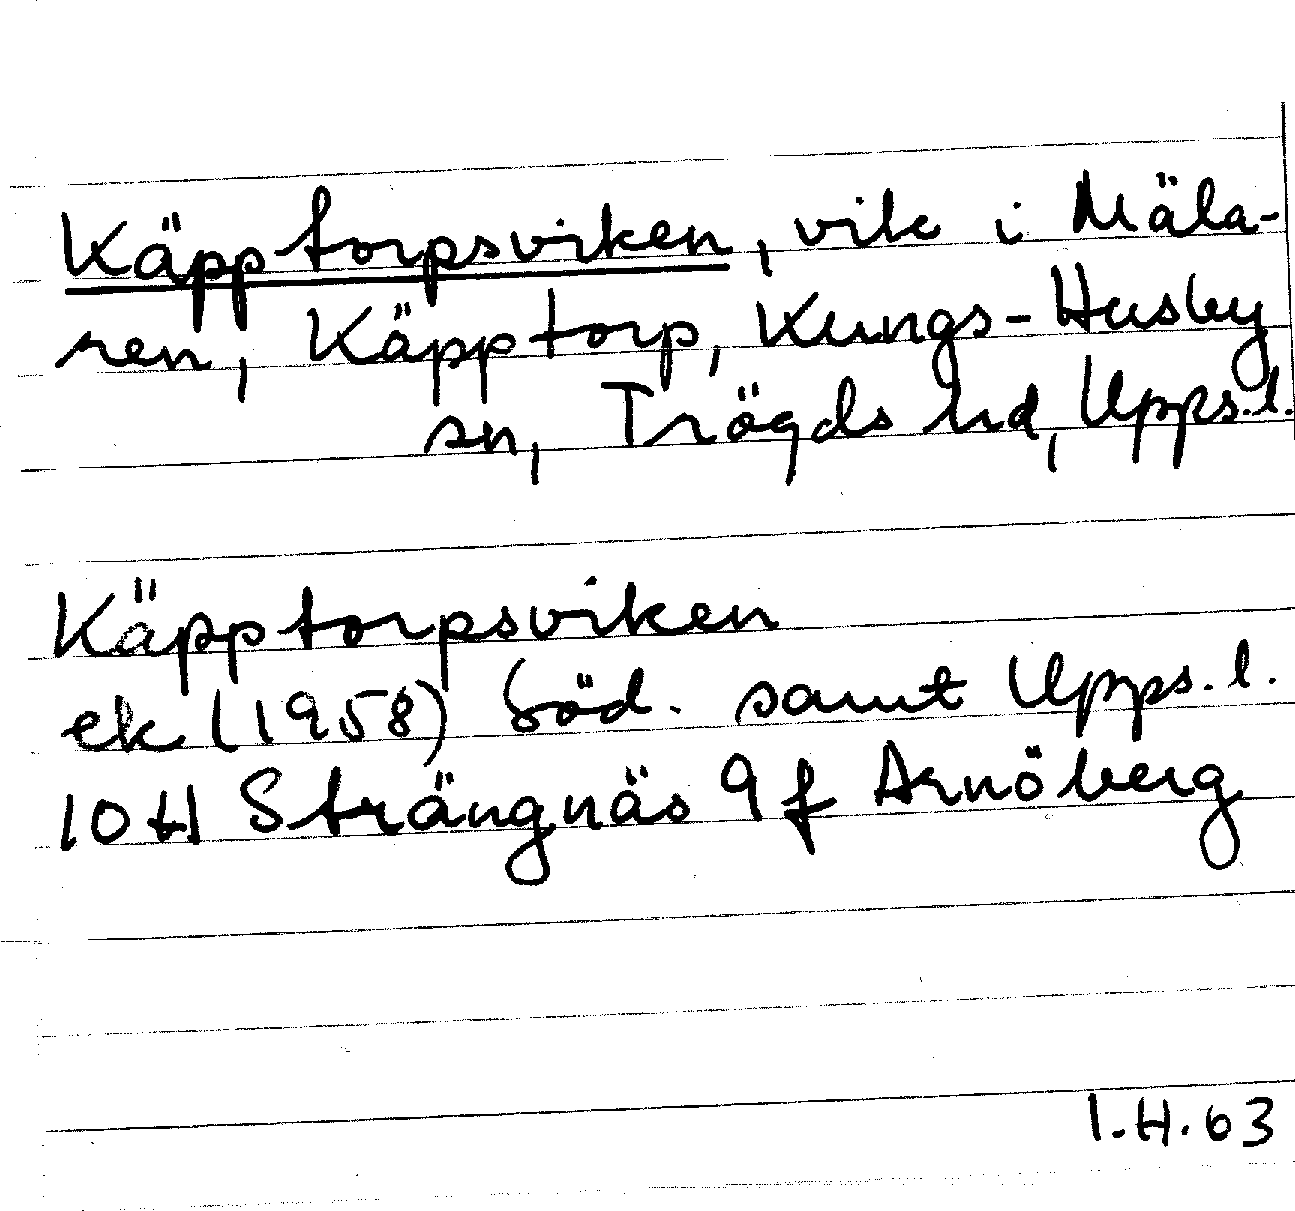 Käpptorpsviken, vik i Mäla-
ren, Käpptorp, Kungs-Husby
sn, Trögds hd, Upps.l.
Käpptorpsviken
ek (1958) Söd. samt Upps.l.
10H Strängnäs 9f Arnöberg
I.H.63